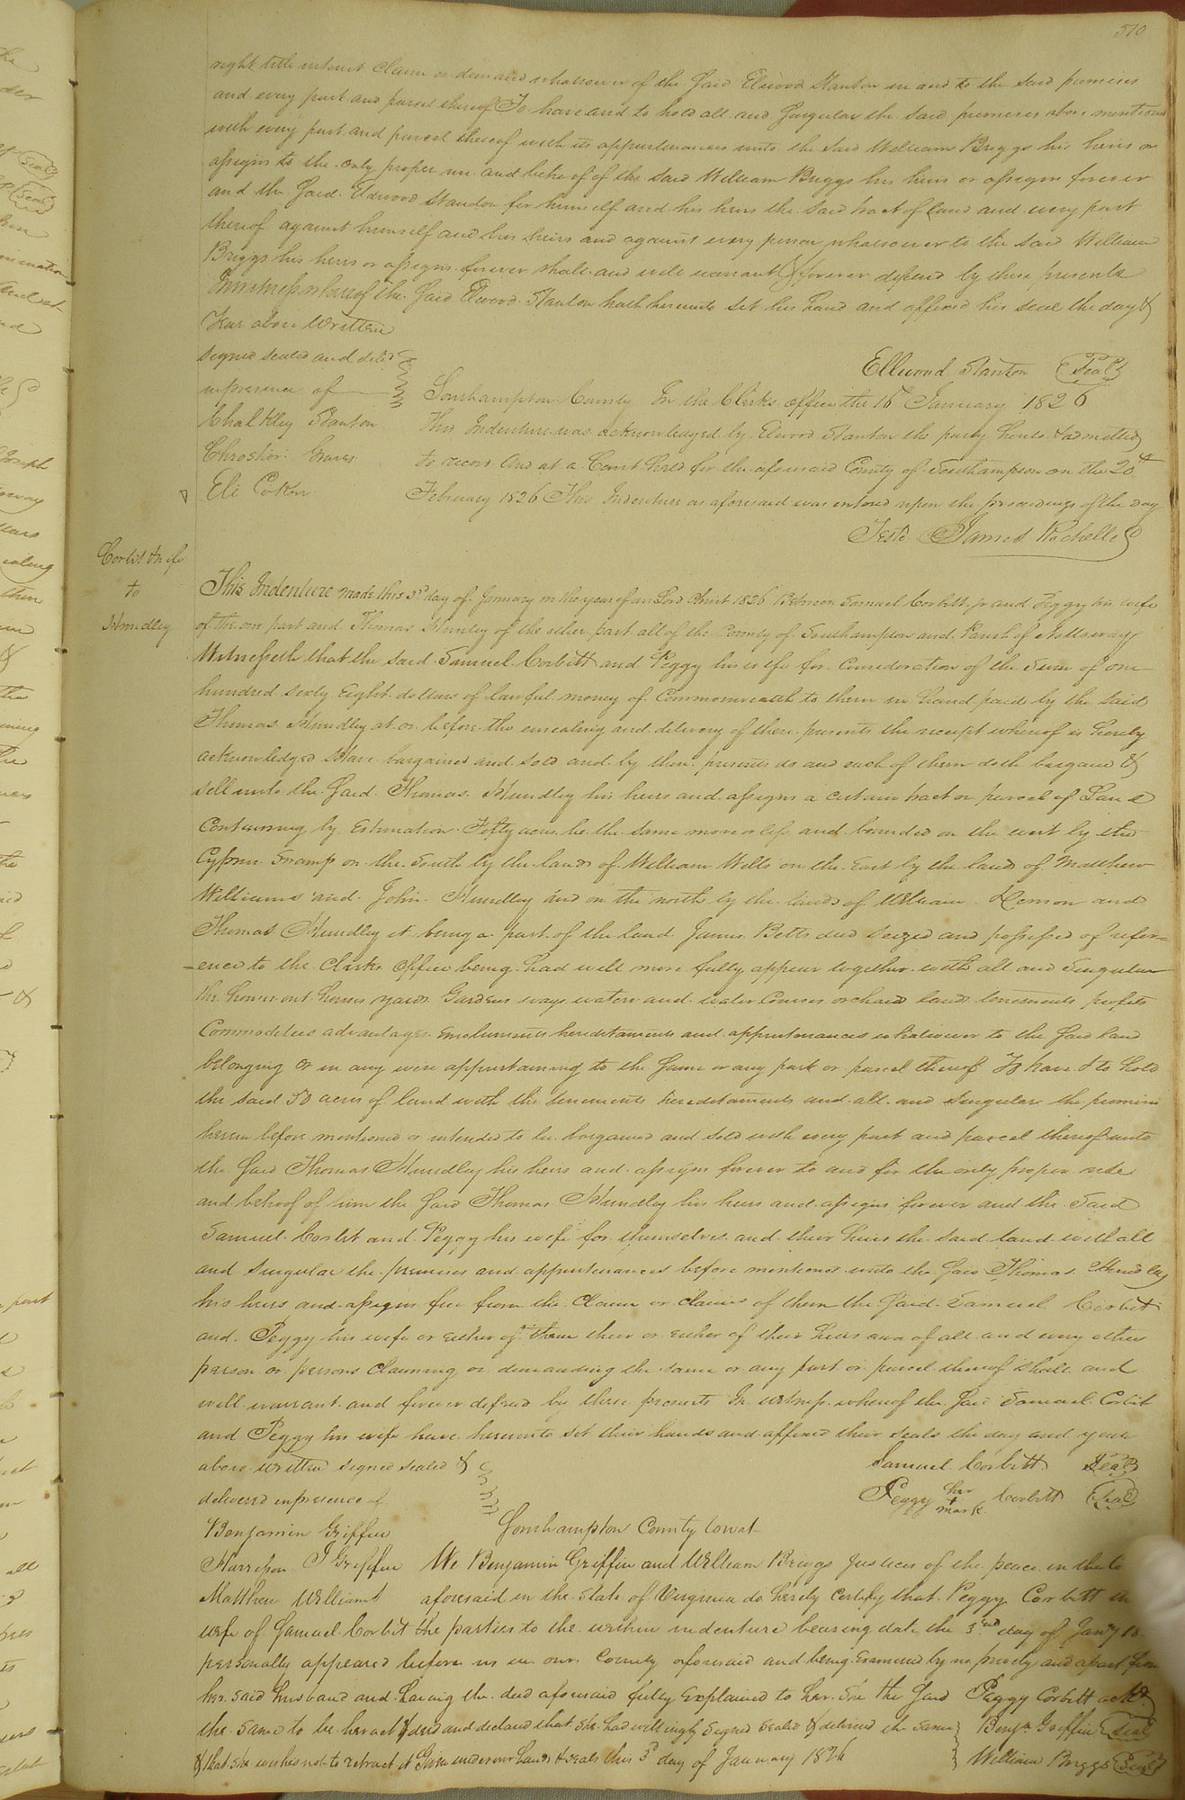 510
right title interest claim or demand whatsoever of the Said Elwood Stanton in and to the said premises
and every part and parcel thereof To have and to hold all and Singular the said premises above mentioned
with every part and parcel thereof with its appurtenances unto the said William Briggs his heirs or
assigns to the only proper use and behoof of the said William Briggs his heirs or assigns forever
and the Said Elwood Stanton for himself and his heirs the said tract of land and every part
thereof against himself and his heirs and against every person whatsoever to the said William
Briggs his heirs or assigns forever shall and will warrant & forever defend by these presents
In witness whereof the Said Elwood Stanton hath hereunto set his hand and affixed his seal the day &
Year above Written
signed sealed and deld
in presence of
Chalkley Stanton
Eli
Ellwood Stanton Seal
Southampton County In the Clerks office the 16th January 1826
This Indenture was acknowledged by Elwood Stanton the party hereto & admitted
to record And at a Court held for the aforesaid County of Southampton on the 20th
February 1826 This Indenture as aforesaid was entered upon the proceedings of the day
Teste James Rochelle
Corbit & wife
to
Hundley
This Indenture made this 3d day of January in the year of our Lord Christ 1826 Between Samuel Corbitt jr and Peggy his wife
of the one part and Thomas Hundley of the other part all of the County of Southampton and Parish of Nottoway
Witnesseth that the said Samuel Corbitt and Peggy his wife for Consideration of the Sum of one
hundred sixty Eight dollars of lawful money of Commonwealth to them in hand paid by the said
Thomas Hundley at or before the ensealing and delivery of these presents the receipt whereof is hereby
acknowledged Have bargained and Sold and by these presents do and each of them doth bargain &
Sell unto the Said Thomas Hundley his heirs and assigns a certain tract or parcel of Land
Containing by Estimation Fifty acres be the same more or less and bounded on the west by the
Cypress Swamp on the South by the lands of William Wills on the East by the lands of Matthew
Williams and John Hundley and on the north by the lands of William and
Thomas Hundley it being a part of the land James Betts died Seized and possessed of refer
-ence to the Clerks Office being had will more fully appear together with all and Singular
the houses out houses yards Gardens ways waters and water Courses orchard land tenements profits
Commodities advantages Emoluments hereditaments and appurtenances whatsoever to the Said land
belonging or in any wise appertaining to the Same or any part or parcel thereof To have & to hold
the said 50 acres of land with the tenements hereditaments and all and Singular the premises
herein before mentioned or intended to be bargained and sold with every part and parcel thereof unto
the Said Thomas Hundley his heirs and assigns forever to and for the only proper use
and behoof of him the Said Thomas Hundley his heirs and assigns forever and the Said
Samuel Corbit and Peggy his wife for themselves and their heirs the said land with all
and Singular the premises and appurtenances before mentioned unto the Said Thomas Hundley
his heirs and assigns free from the Claim or claims of them the Said Samuel Corbit
and Peggy his wife or Either of them their or either of their heirs and of all and every other
person or persons Claiming or demanding the same or any part or parcel thereof Shall and
will warrant and forever defend by these presents In witness whereof the Said Samuel Corbit
and Peggy his wife have hereunto set their hands and affixed their seals the day and year
above written signed sealed &
delivered in presence of
Benjamin Griffin
Harrison J Griffin
Matthew Williams
Samuel Corbitt Seal
Peggy her + mark Corbitt Seal
Southampton County towit
We Benjamin Griffin and William Briggs Justices of the peace in the Co
aforesaid in the State of Virginia do hereby Certify that Peggy Corbitt the
wife of Samuel Corbit the parties to the within indenture bearing date the 3rd day of Jany 18
personally appeared before us in our County aforesaid and being Examined by us privily and apart from
her said husband and having the deed aforesaid fully Explained to her She the Said Peggy Corbitt ackd
the same to be her act & deed and declared that she had willingly Signed Sealed & delivered the same
& that she wished not to retract it Given under our hands & seals this 3d day of January 1826
Benjn Griffin Seal
William Briggs Seal